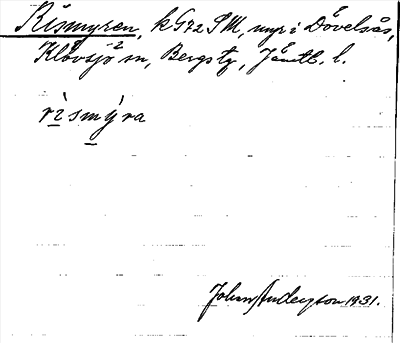 Rismyren, k G72 SM, myr i Dövelsås,
Klövsjö sn, Bergs tg, Jämtl. l.
rìsmỳra
Johan Anderson 1931.